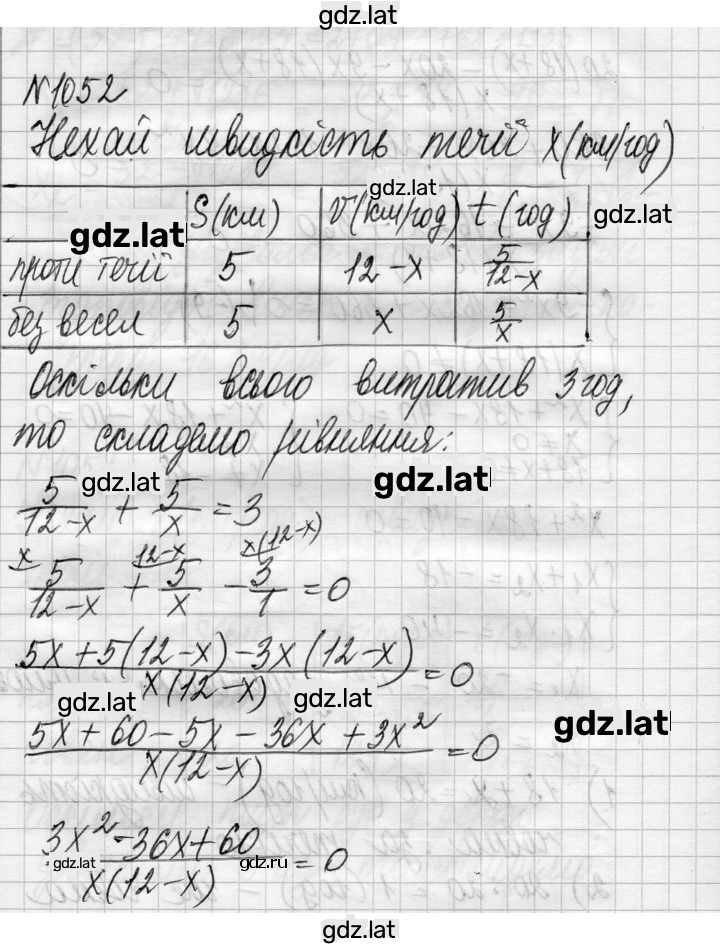 gdz.lat
N1052
Нехай швидкість течії x(км/год)
gdz.lat
S(км) V(км/год) t(год) gdz.lat
gdz.lat
проти течії 5 12-x 5/(12-x)
без весел 5 x 5/x
Оскільки всього витратив 3 год,
то складемо рівняння:
gdz.lat gdz.lat
5/(12-x) + 5/x = 3
x 12-x x(12-x)
5/(12-x) + 5/x - 3/1 = 0
(5x+5(12-x)-3x(12-x))/(x(12-x)) = 0
gdz.lat gdz.lat gdz.lat
(5x+60-5x-36x+3x²)/(x(12-x)) = 0
(3x²-36x+60)/(x(12-x)) = 0
gdz.lat gdz.ru
gdz.lat